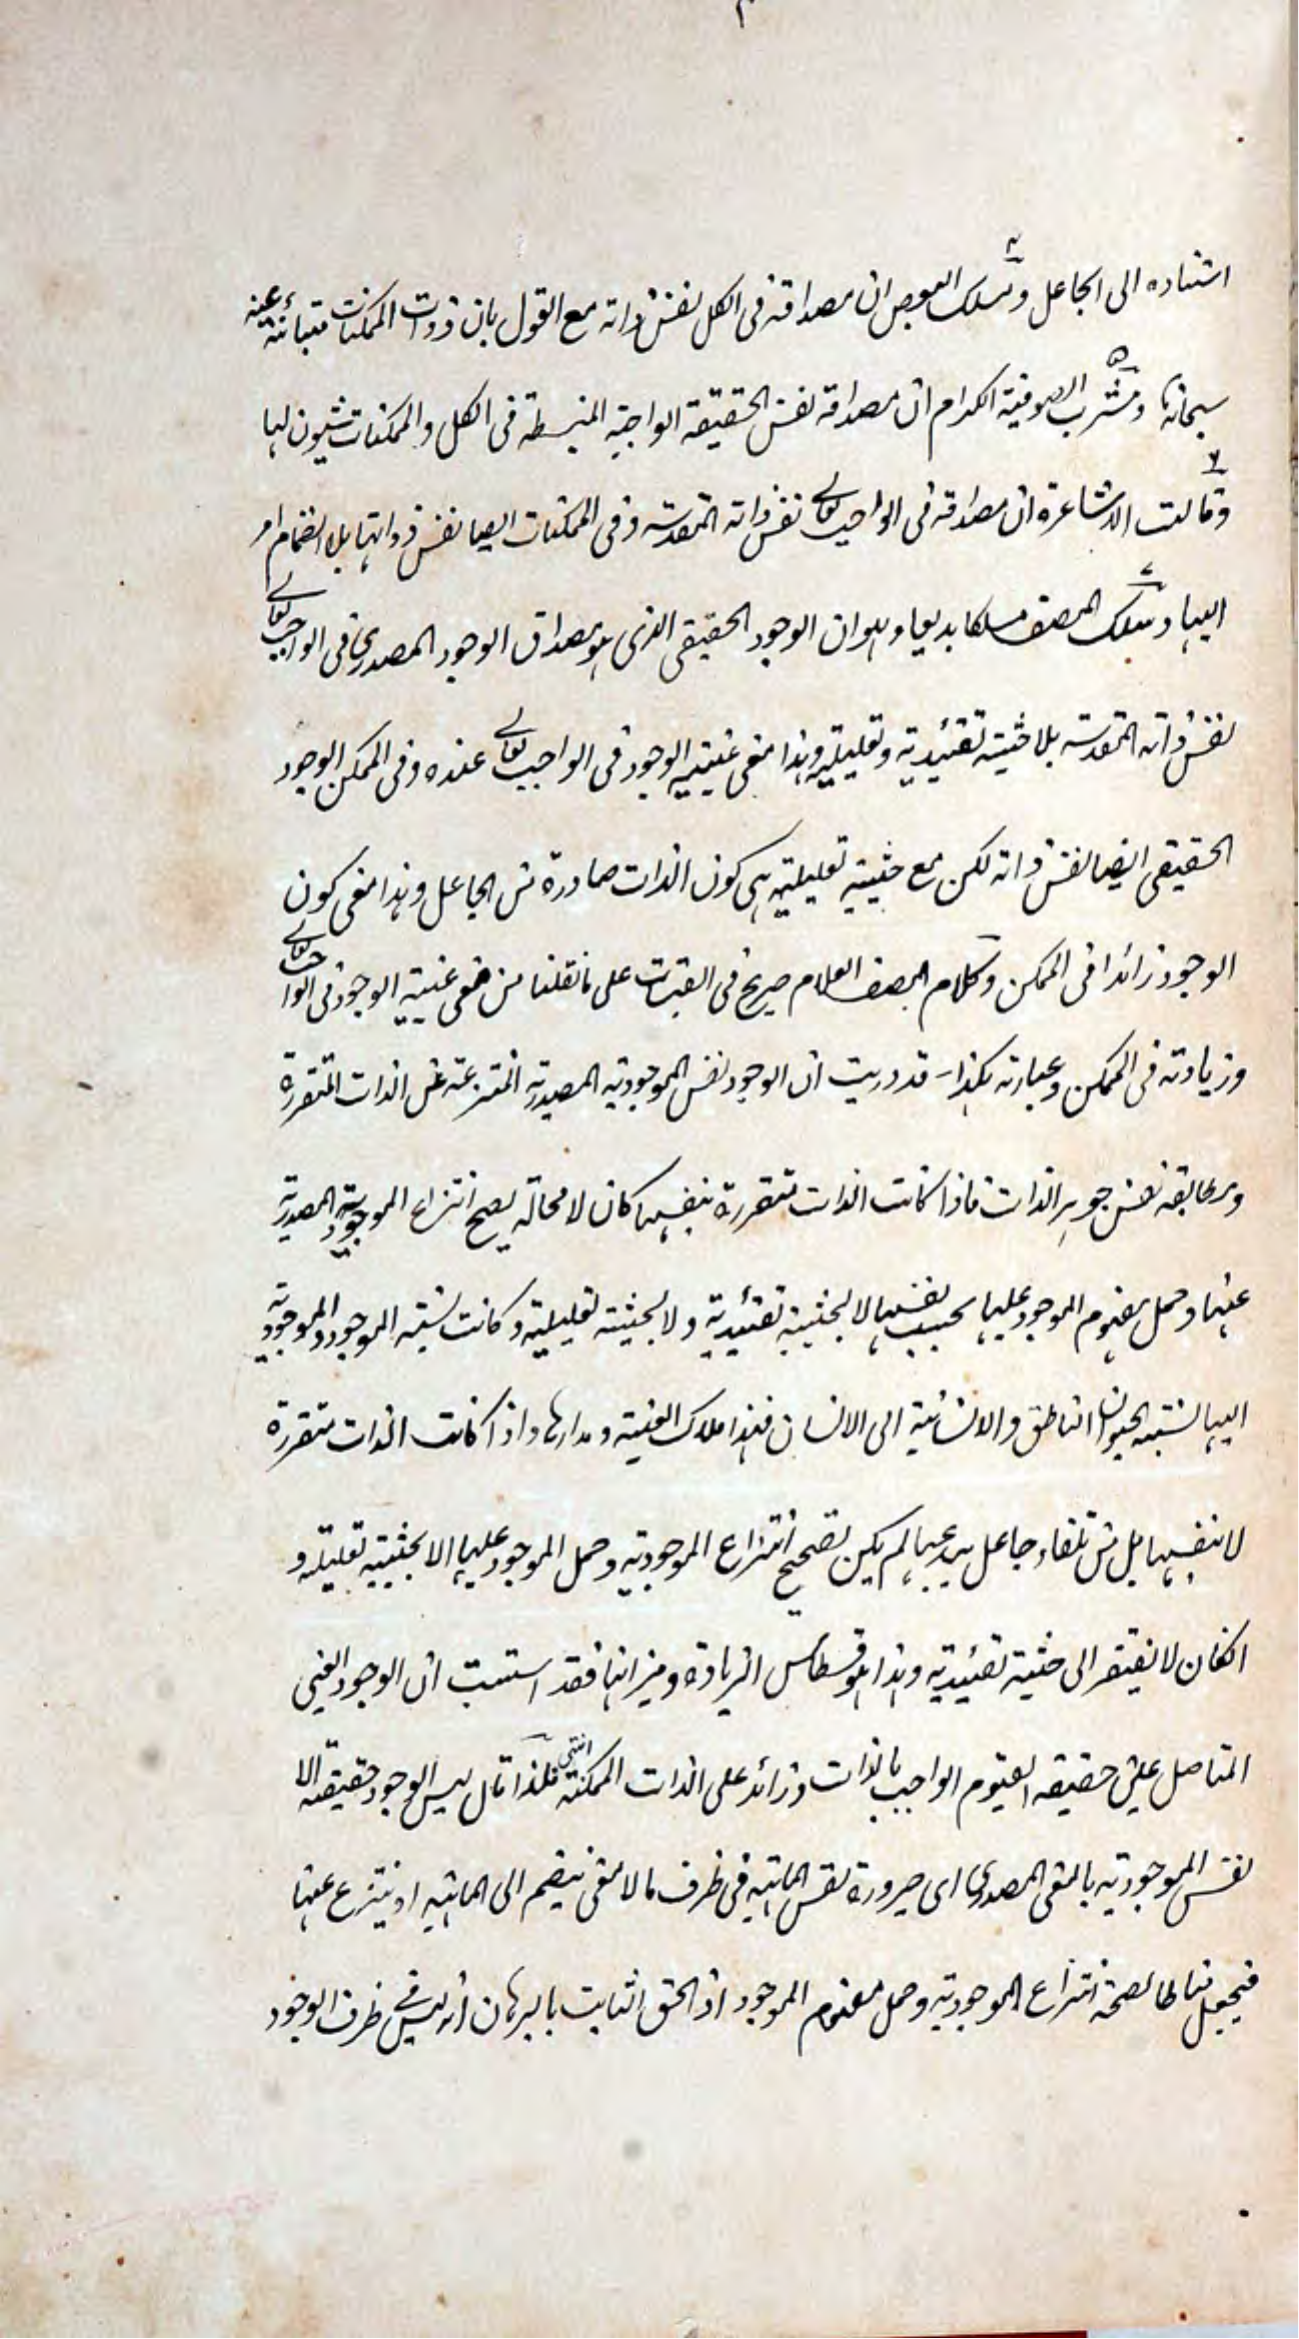 ٣
استناده الى الجاعل ومسلك البعض ان مصداقه فى الكل نفس ذاته مع القول بان ذوات الممكنات متبائنة عينه
سبحانه ومشرب الصوفية الكرام ان مصداقه نفس الحقيقة الواجبة المنبسطة فى الكل والممكنات شيون لها
وقالت الاشاعرة ان مصداقه فى الواجب تعالى نفس ذاته المقدسة وفى الممكنات ايضا نفس ذواتها بلا انضمام امر
اليها وسلك المصنف مسلكا بديعا وهو ان الوجود الحقيقى الذى هو مصداق الوجود المصدرى فى الواجب تعالى
نفس ذاته المقدسة بلا حيثية تقئيدية وتعليلية وهذا معنى عينية الوجود فى الواجب تعالى عنده وفى الممكن الوجود
الحقيقى ايضا نفس ذاته لكن مع حيثية تعليلية هى كون الذات صادرة من الجاعل وهذا معنى كون
الوجود زائدا فى الممكن وكلام المصنف العلام صريح فى القبسات على ما نقلنا من معنى عينية الوجود فى الواجب تعالى
وزيادته فى الممكن وعبارته هكذا قد دريت ان الوجود نفس الموجودية المصدرية المنتزعة من الذات المتقررة
ومطابقه نفس جوهر الذات فاذا كانت الذات متقررة بنفسها كان لا محالة يصح انتزاع الموجودية المصدرية
عنها وحمل مفهوم الموجود عليها بحسب نفسها لا بحيثية تقئيدية ولا بحيثية تعليلية وكانت نسبة الموجود والموجودية
اليها نسبة الحيوان الناطق والانسانية الى الانسان فهذا ملاك العينية ومدارها واذا كانت الذات متقررة
لا بنفسها بل من تلقاء جاعل يبدعها لم يكن تصحيح انتزاع الموجودية وحمل الموجود عليها الا بحيثية تعليلية و
انكان لا يفتقر الى حيثية تقئيدية وهذا هو قسطاس الزيادة وميزانها فقد استتب ان الوجود العينى
المتاصل عين حقيقة القيوم الواجب بالذات وزائد على الذات الممكنة انتهى فلذا قال ليس الوجود حقيقته الا
نفس الموجودية بالمعنى المصدرى اى صيرورة نفس الماهية فى ظرف ما لا معنى ينضم الى الماهية او ينتزع عنها
فيجعل مناطا لصحة انتزاع الموجودية وحمل مفهوم الموجود اذ الحق الثابت بالبرهان ان ليس فى ظرف الوجود